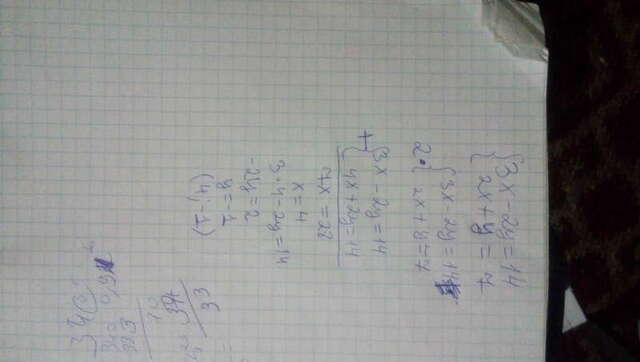 {3x - 2y = 14
{2x + y = 7
{3x - 2y = 14
2·{2x + y = 7
+{3x - 2y = 14
{4x + 2y = 14
7x = 28
x = 4
3·4 - 2y = 14
-2y = 2
y = -1
(4; -1)
33